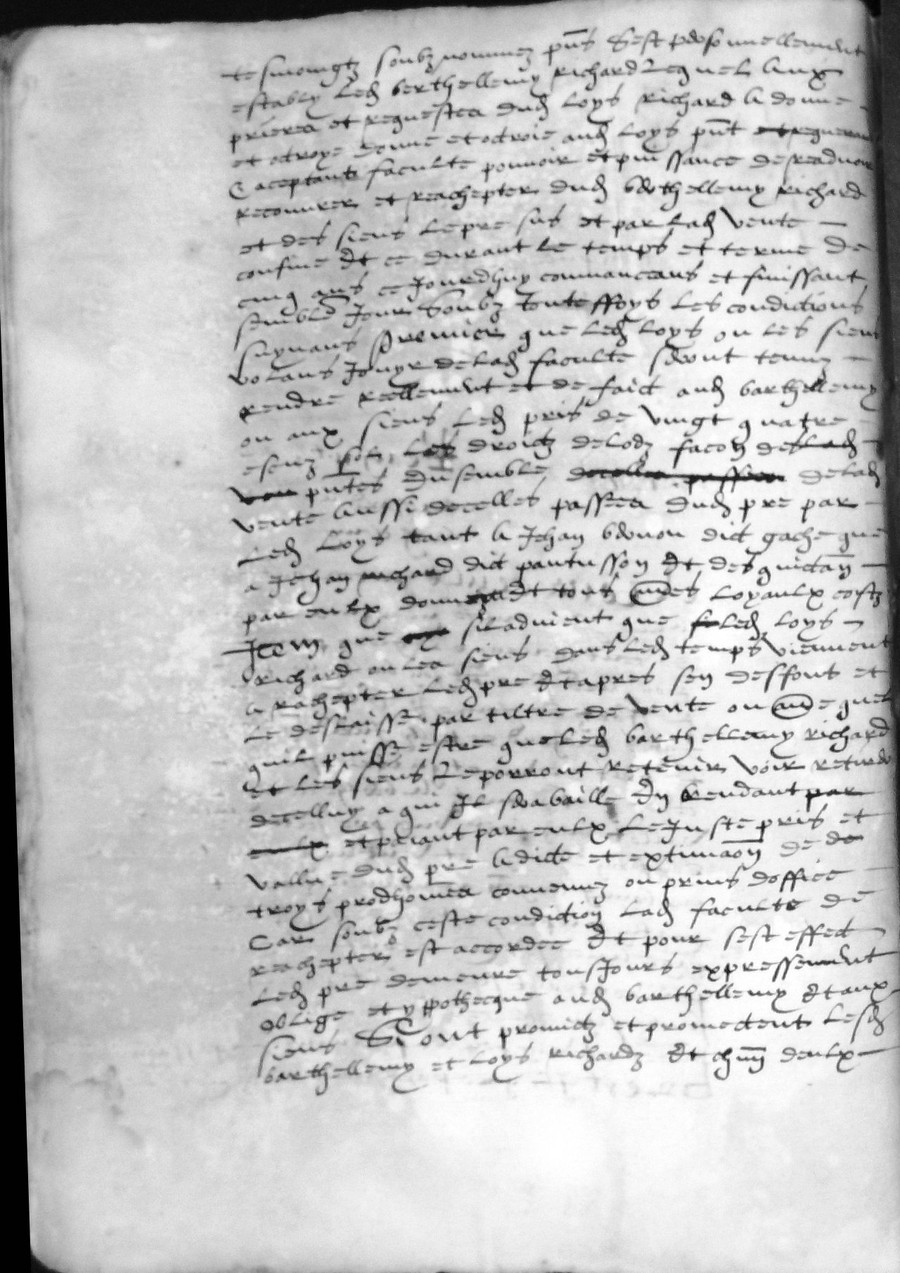 tesmoingtz soubz nommez pñs Sest personnellement
estably led berthellemy richard Lequel aux
prieres et requestes dud loys richard a donne
et otroye donne et otroie aud loys pñt et requerant
& aceptant faculte pouvoir et puissance de readvoir
recouvrer et reachepter dud berthellemy richard
et des siens le pre sus et par lad vente
confine Et ce durant le temps et terme de
cinq ans ce Jourdhuy commancans et finissant
semble Jour Soubz touteffoys les conditions
suyvans Premier que led loys ou les siens
volans Jouyr de lad faculte seront tenuz
rendre reellement et de faict aud barthellemy
ou aux siens led pris de vingt quatre
escuz sol Les droictz de lodz facon des lad
pñtes Ensemble de celles passees de lad
vente Aussi de celles passees dud pre par
Led Loys tant a Jehan dict gache que
a Jehan richard dict pantusson Et des quictan
par eulx Et tous aũes loyaulx costz
Item que sil advient que led loys
richard ou les siens dans led temps viennent
a rachepter led pre Et apres sen dessont et
le descaisse par tiltre de vente ou aũe quel
quil puisse estre que led barthellemy richard
Et les siens le porront retenir voir retirer
decelluy a qui Il sera baille En rendant par
eulx et paiant par eulx Le Juste pris et
vallue dud pre A dicte et extimaoñ de de
troys prodhomes convenuz ou prins doffice
Car soubz ceste condition lad faculte de
reachepter est accordee Et pour sest effect
Led pre demeure tousJours expressement
oblige et yppothecque aud barthellemy Et aux
siens Si ont promictz et promectent lesd
barthellemy et loys richardz Et chũn deulx